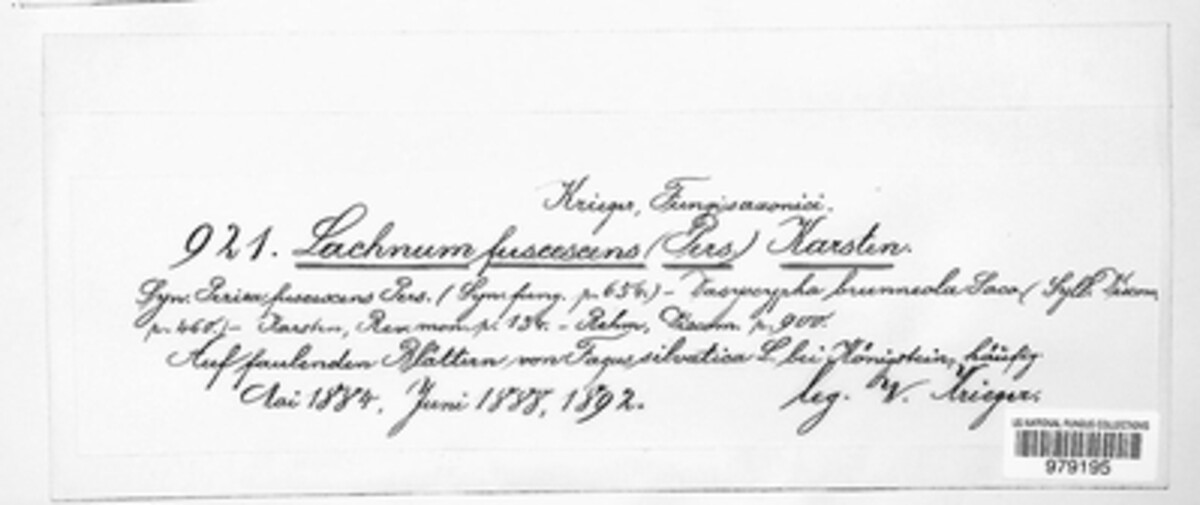 Krieger, Fungi saxonici.
921. Lachnum fuscescens (Pers) Karsten.
Syn. Peziza fuscescens Pers. (Syn. fung. p. 654.) – Dasyscypha brunneola Sacc (Syll. Discom,
p. 460.) – Karsten, Rev. mon. p. 134. – Rehm, Discom. p. 900.
Auf faulenden Blättern von Fagus silvatica L. bei Königstein, häufig
Mai 1884, Juni 1888, 1892. leg. W. Krieger.
US NATIONAL FUNGUS COLLECTIONS
979195